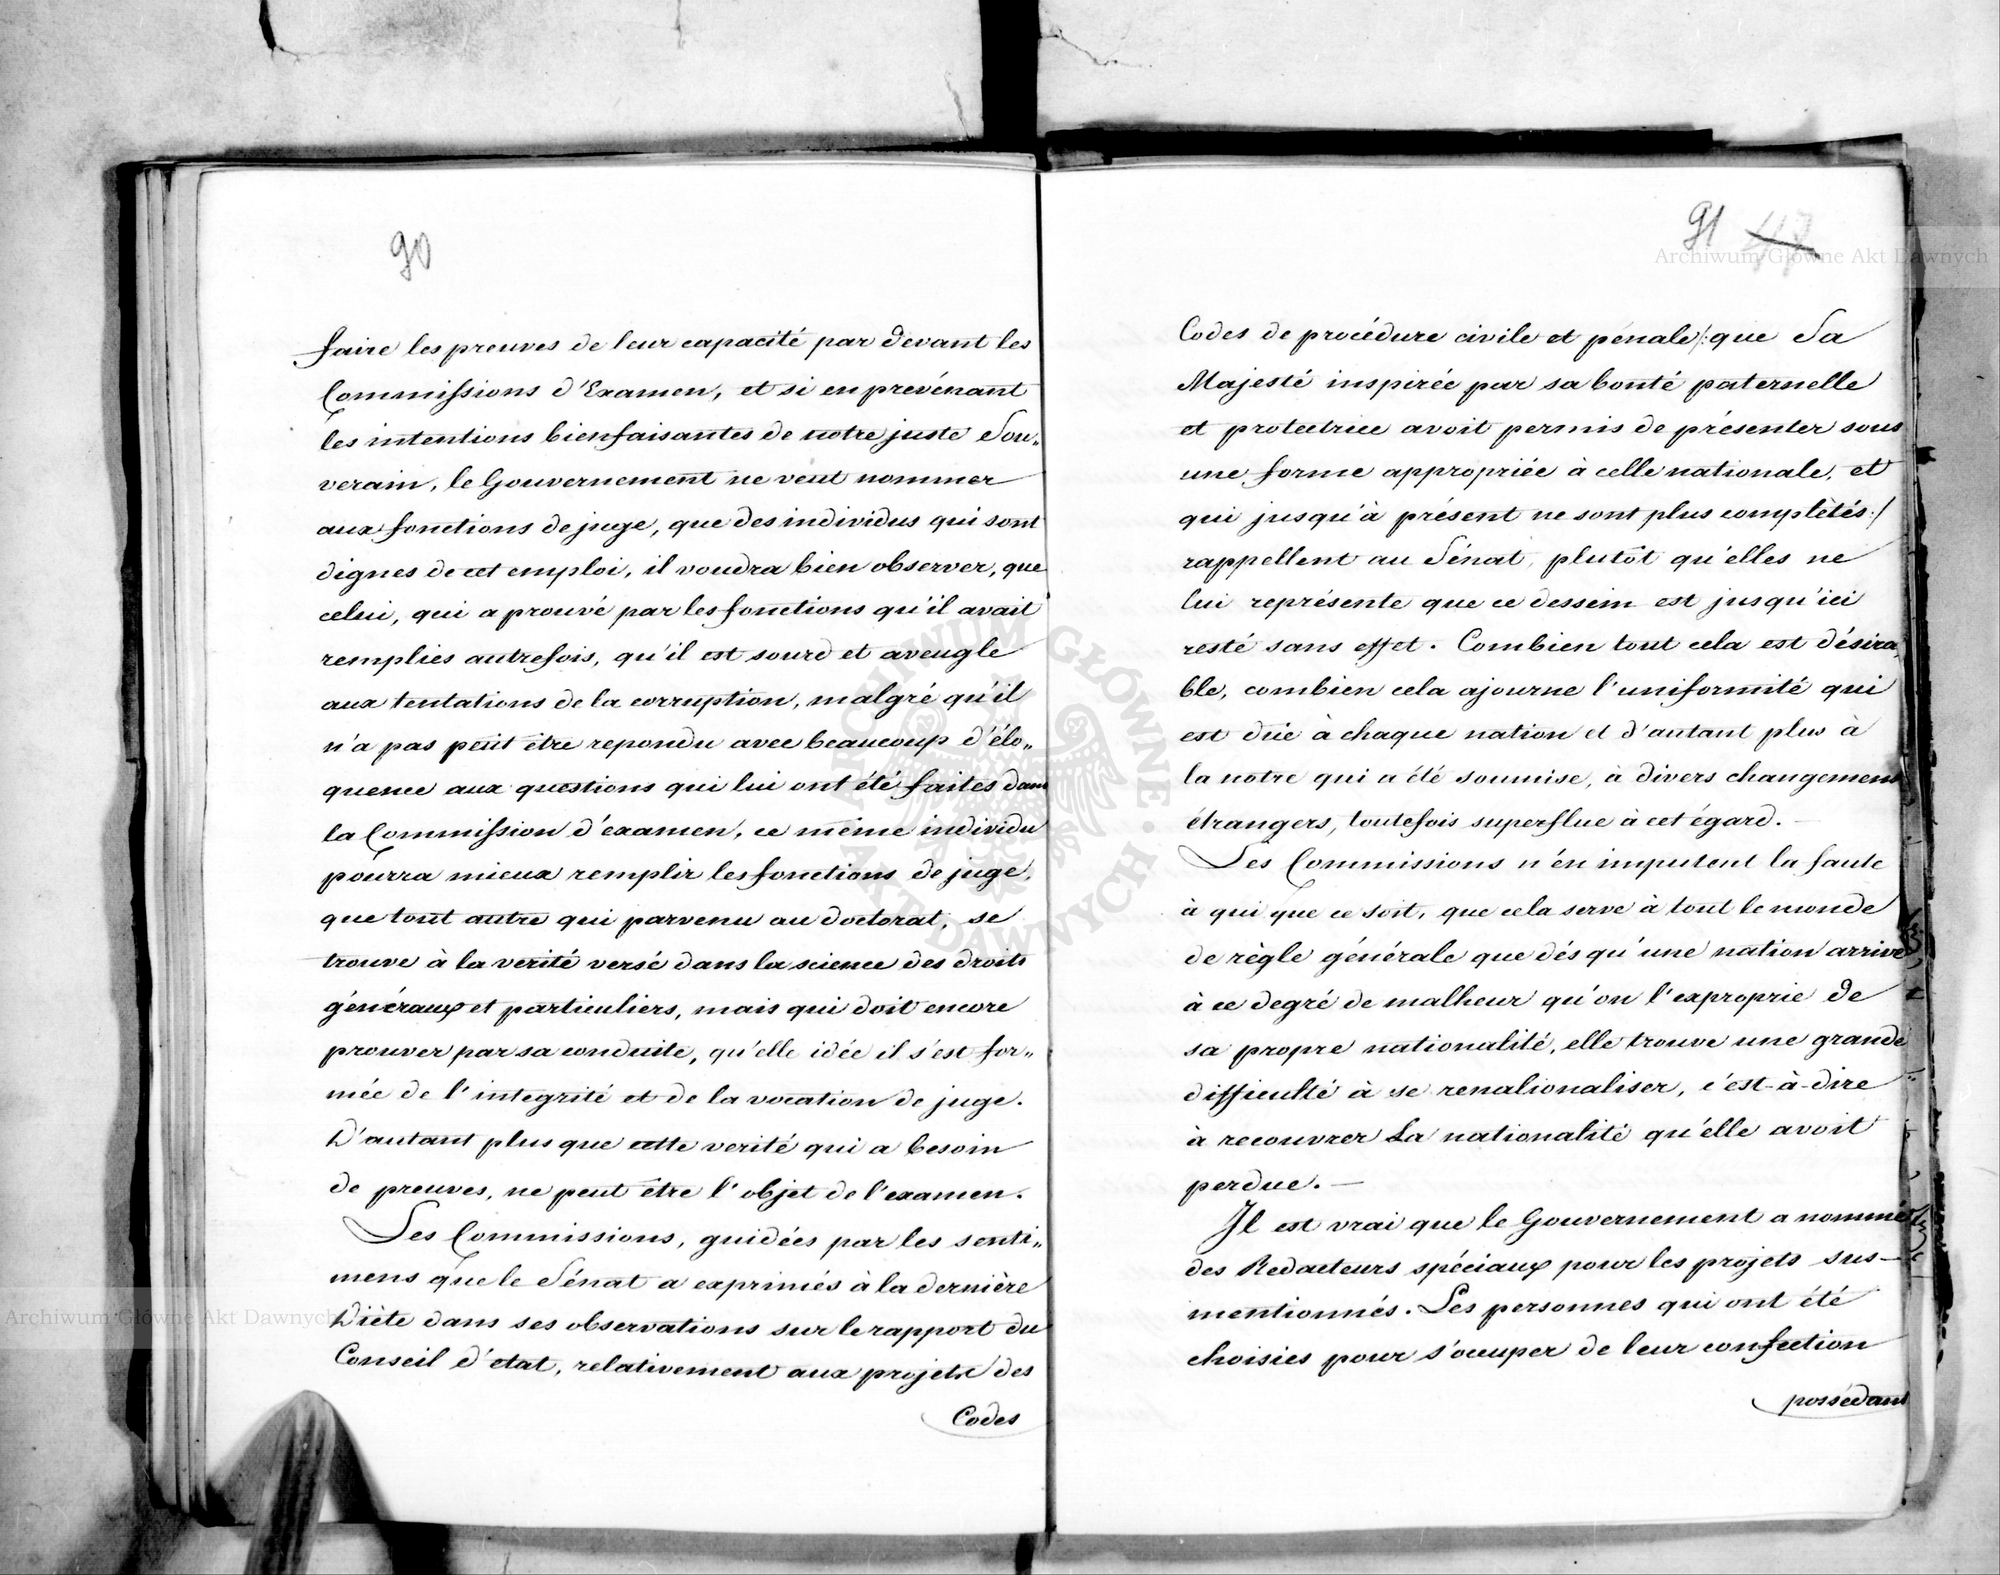 90
faire les preuves de leur capacité par devant les
Commissions d'Examen, et si en prevénant
les intentions bienfaisantes de notre juste Sou„
verain, le Gouvernement ne veut nommer
aux fonctions de juge, que des individus qui sont
dignes de cet emploi, il voudra bien observer, que
celui, qui a prouvé par les fonctions qu'il avait
remplies autrefois, qu'il est sourd et aveugle
aux tentations de la corruption, malgré qu'il
n'a pas peut être repondu avec beaucoup d'élo„
quence aux questions qui lui ont été faites dans
la Commission d'examen, ce même individu
pourra mieux remplir les fonctions de juge,
que tout autre qui parvenu au doctorat, se
trouve à la verité versé dans la science des droits
généraux et particuliers, mais qui doit encore
prouver par sa conduite, qu'elle idée il s'est for„
mée de l'integrité et de la vocation de juge.
D'autant plus que cette verité qui a besoin
de preuves, ne peut être l'objet de l'examen.
Les Commissions, guidées par les senti„
mens que le Sénat a exprimés à la dernière
Diète dans ses observations sur le rapport du
Conseil d'etat, relativement aux projets des
Codes
91
Codes de procédure civile et pénale /: que Sa
Majesté inspirée par sa bonté paternelle
et protectrice avoit permis de présenter sous
une forme appropriée à celle nationale, et
qui jusqu'à présent ne sont plus complètés :/
rappellent au Sénat, plutôt qu'elles ne
lui représente que ce dessein est jusqu'ici
resté sans effet. Combien tout cela est désira„
ble, combien cela ajourne l'uniformité qui
est due à chaque nation et d'autant plus à
la notre qui a été soumise, à divers changemens
étrangers, toutefois superflue à cet égard. —
Les Commissions n'en imputent la faute
à qui que ce soit, que cela serve à tout le monde
de règle générale que dés qu'une nation arrive
à ce degré de malheur qu'on l'exproprie de
sa propre nationalité, elle trouve une grande
difficulté à se renationaliser, c'est-à-dire
à recouvrer La nationalité qu'elle avoit
perdue. —
Il est vrai que le Gouvernement a nommé
des Redacteurs spéciaux pour les projets sus-
mentionnés. Les personnes qui ont été
choisies pour s'occuper de leur confection
possédant
Archiwum Główne Akt Dawnych
Archiwum Główne Akt Dawnych
ARCHIWUM GŁÓWNE AKT DAWNYCH